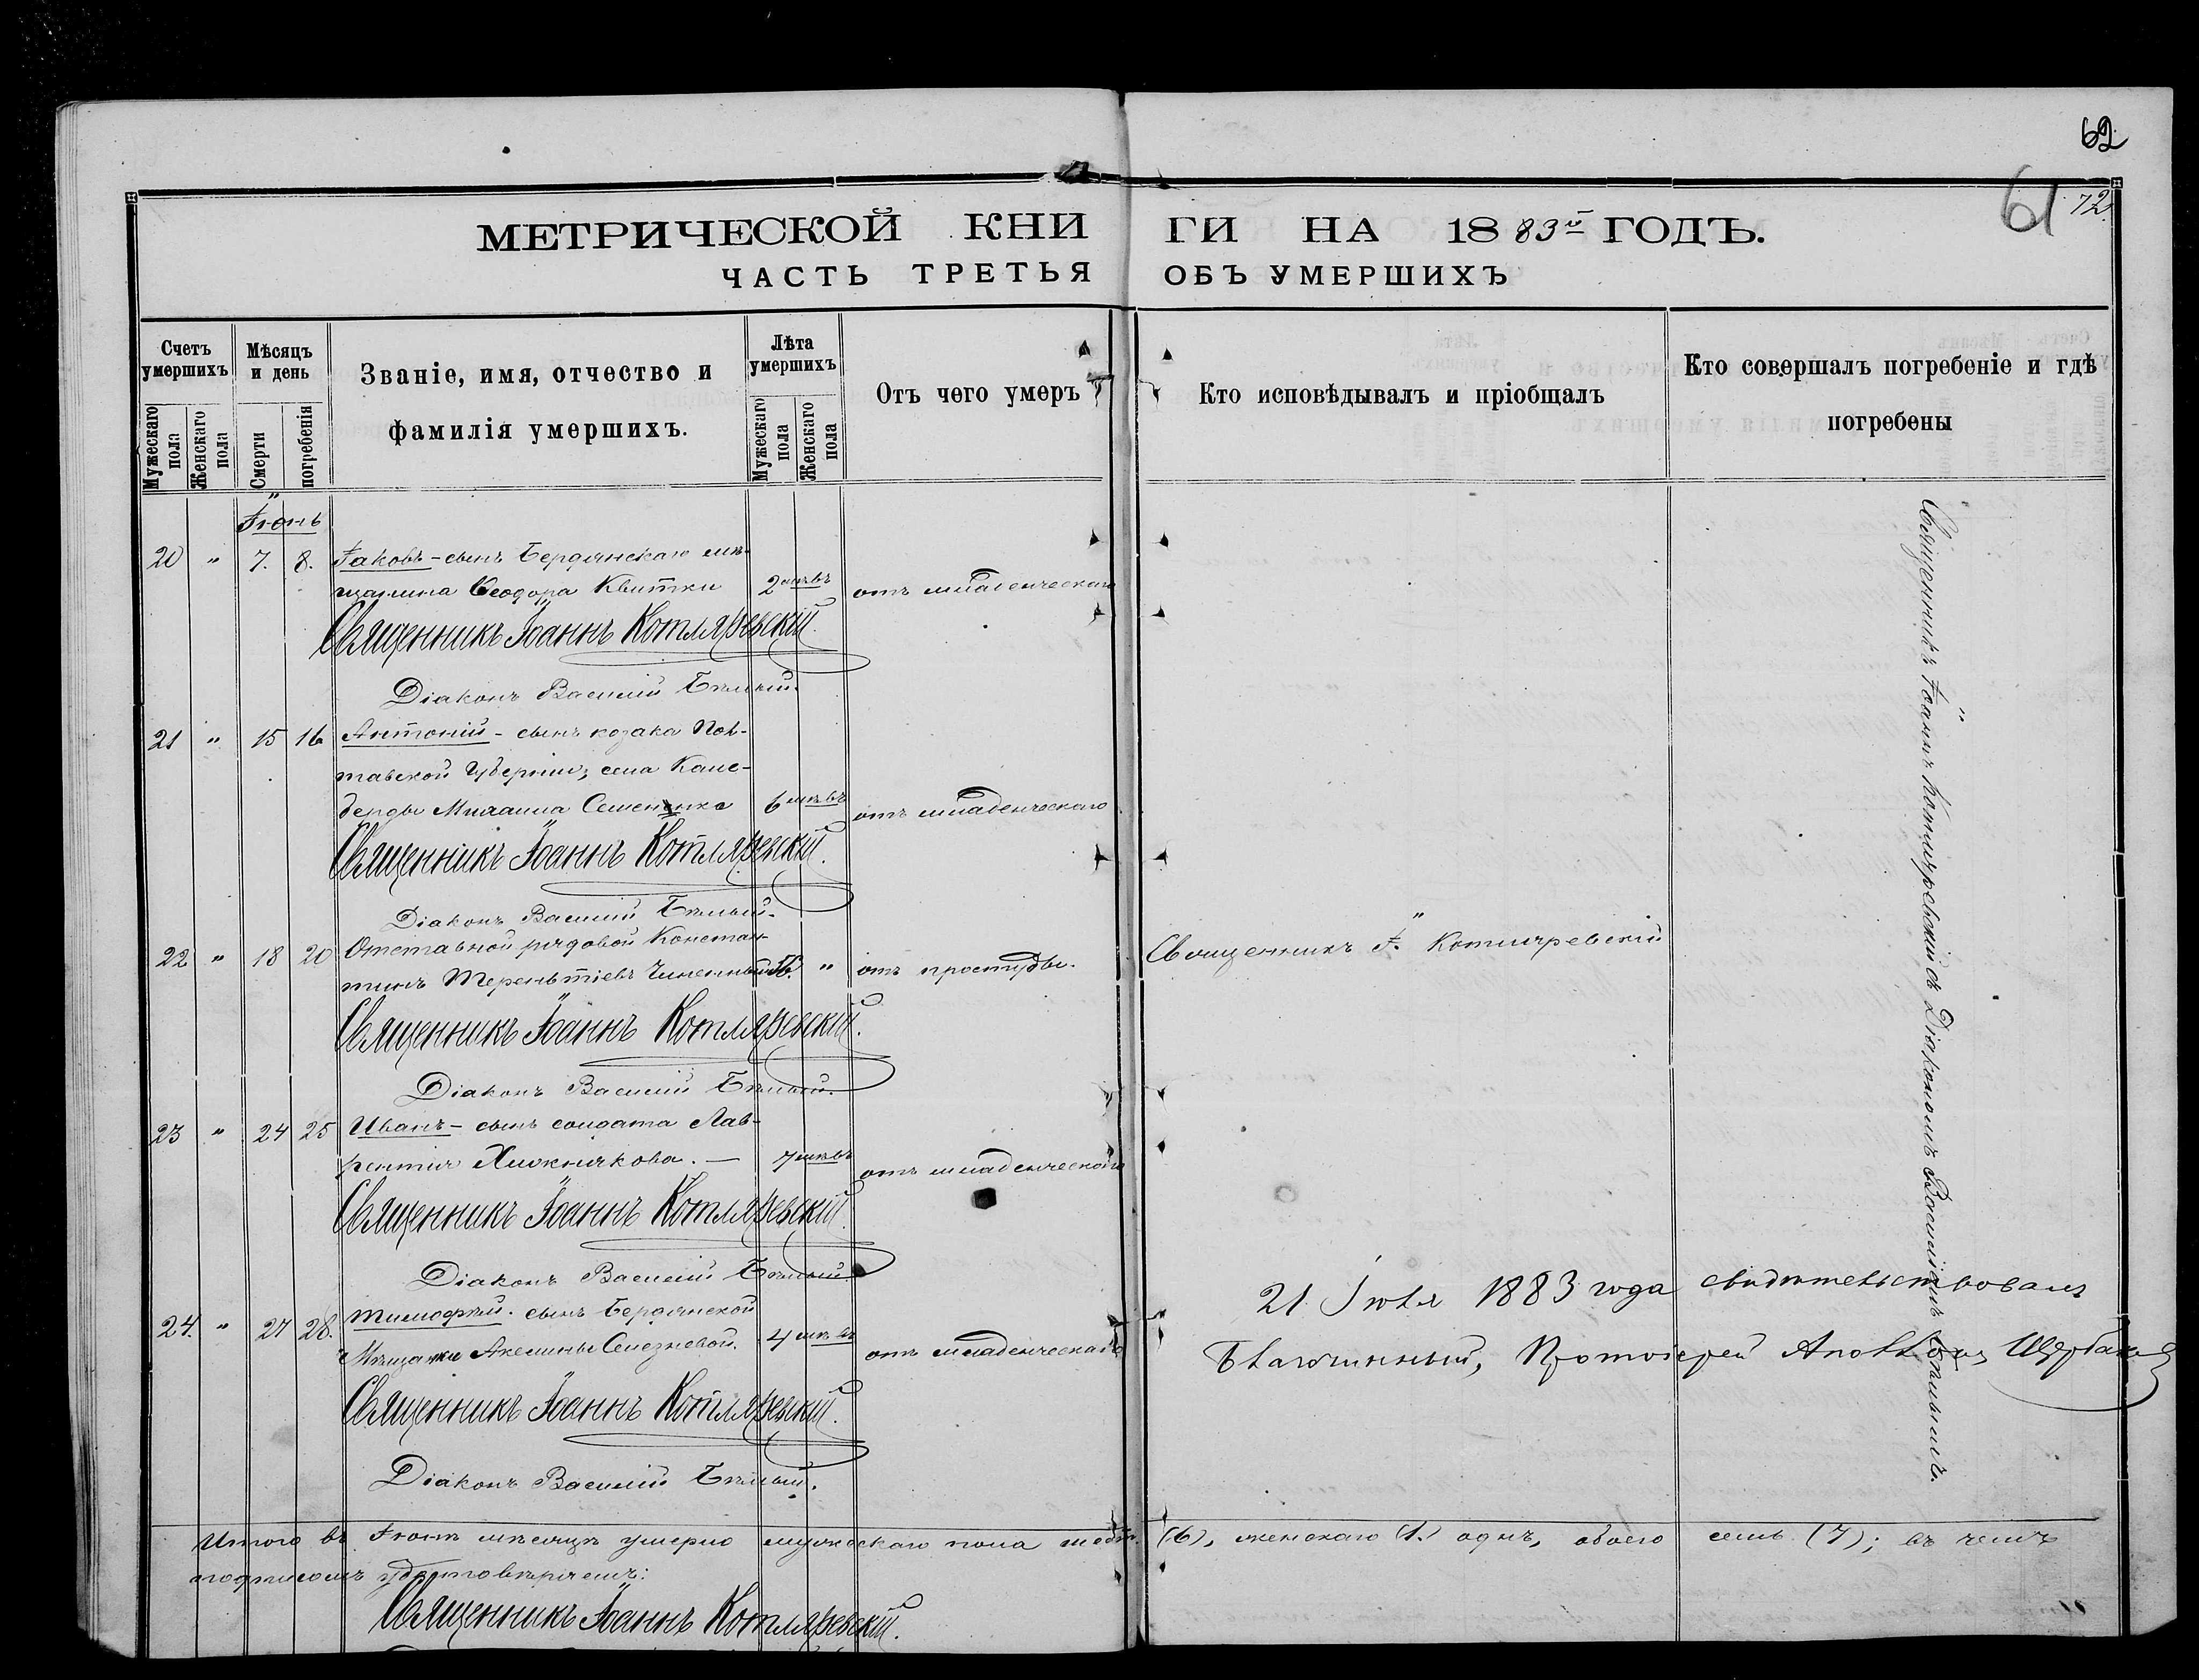 62
61
72.
МЕТРИЧЕСКОЙ КНИГИ НА 1883й ГОДЪ.
ЧАСТЬ ТРЕТЬЯ ОБЪ УМЕРШИХЪ
Счетъ умершихъ
Мужескаго пола
Женскаго пола
Мѣсяцъ и день
Смерти
погребенія
Званіе, имя, отчество и
фамилія умершихъ.
Лѣта умершихъ
Мужескаго пола
Женскаго пола
Отъ чего умеръ
Кто исповѣдывалъ и пріобщалъ
Кто совершалъ погребеніе и гдѣ
погребены
Іюнь
20 " 7. 8. Іаковъ - сынъ Бердянскаго мѣ-
щанина Ѳеодора Квитки 2 мцвъ отъ младенческаго
Священникъ Іоаннъ Котляревскій.
Діаконъ Василій Бѣлый.
21 " 15 16 Антоній - сынъ козака Пол-
тавской Губерніи, села
Михаила Семененка 6 мцвъ отъ младенческаго
Священникъ Іоаннъ Котляревскій.
Діаконъ Василій Бѣлый.
22 " 18 20 Отставной рядовой Констан-
тинъ Терентіевъ " отъ простуды. Священникъ І. Котляревскій
Священникъ Іоаннъ Котляревскій.
Діаконъ Василій Бѣлый.
23 " 24 25 Иванъ - сынъ солдата Лав-
рентія 7 мцвъ отъ младенческаго
Священникъ Іоаннъ Котляревскій.
Діаконъ Василій Бѣлый
24. " 27 28. Тимофей - сынъ Бердянской
Мѣщанки Акелины Селезневой. 4 мцвъ отъ младенческаго
Священникъ Іоаннъ Котляревскій.
Діаконъ Василій Бѣлый.
Священникъ Іоаннъ Котляревскій съ Діакономъ Василіемъ Бѣлымъ.
21 Іюля 1883 года свидѣтельствовалъ
Благочинный, Протоіерей Аполлонъ Щербаковъ
Итого въ Іюнѣ мѣсяцѣ умерло мужескаго пола шесть (6), женскаго (1) одна, обоего семь (7); въ чемъ
подписомъ удостовѣряемъ:
Священникъ Іоаннъ Котляревскій.